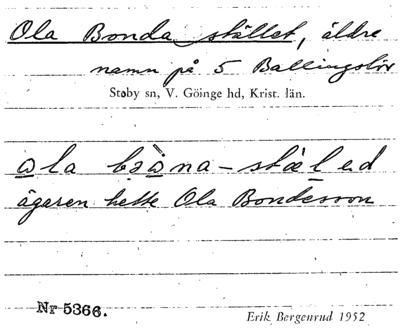 Ola Bonda stället, äldre
namn på 5 Ballingslöv
Stoby sn, V. Göinge hd, Krist. län.
ala
ägaren hette Ola Bondesson
Nr 5366.
Erik Bergenrud 1952